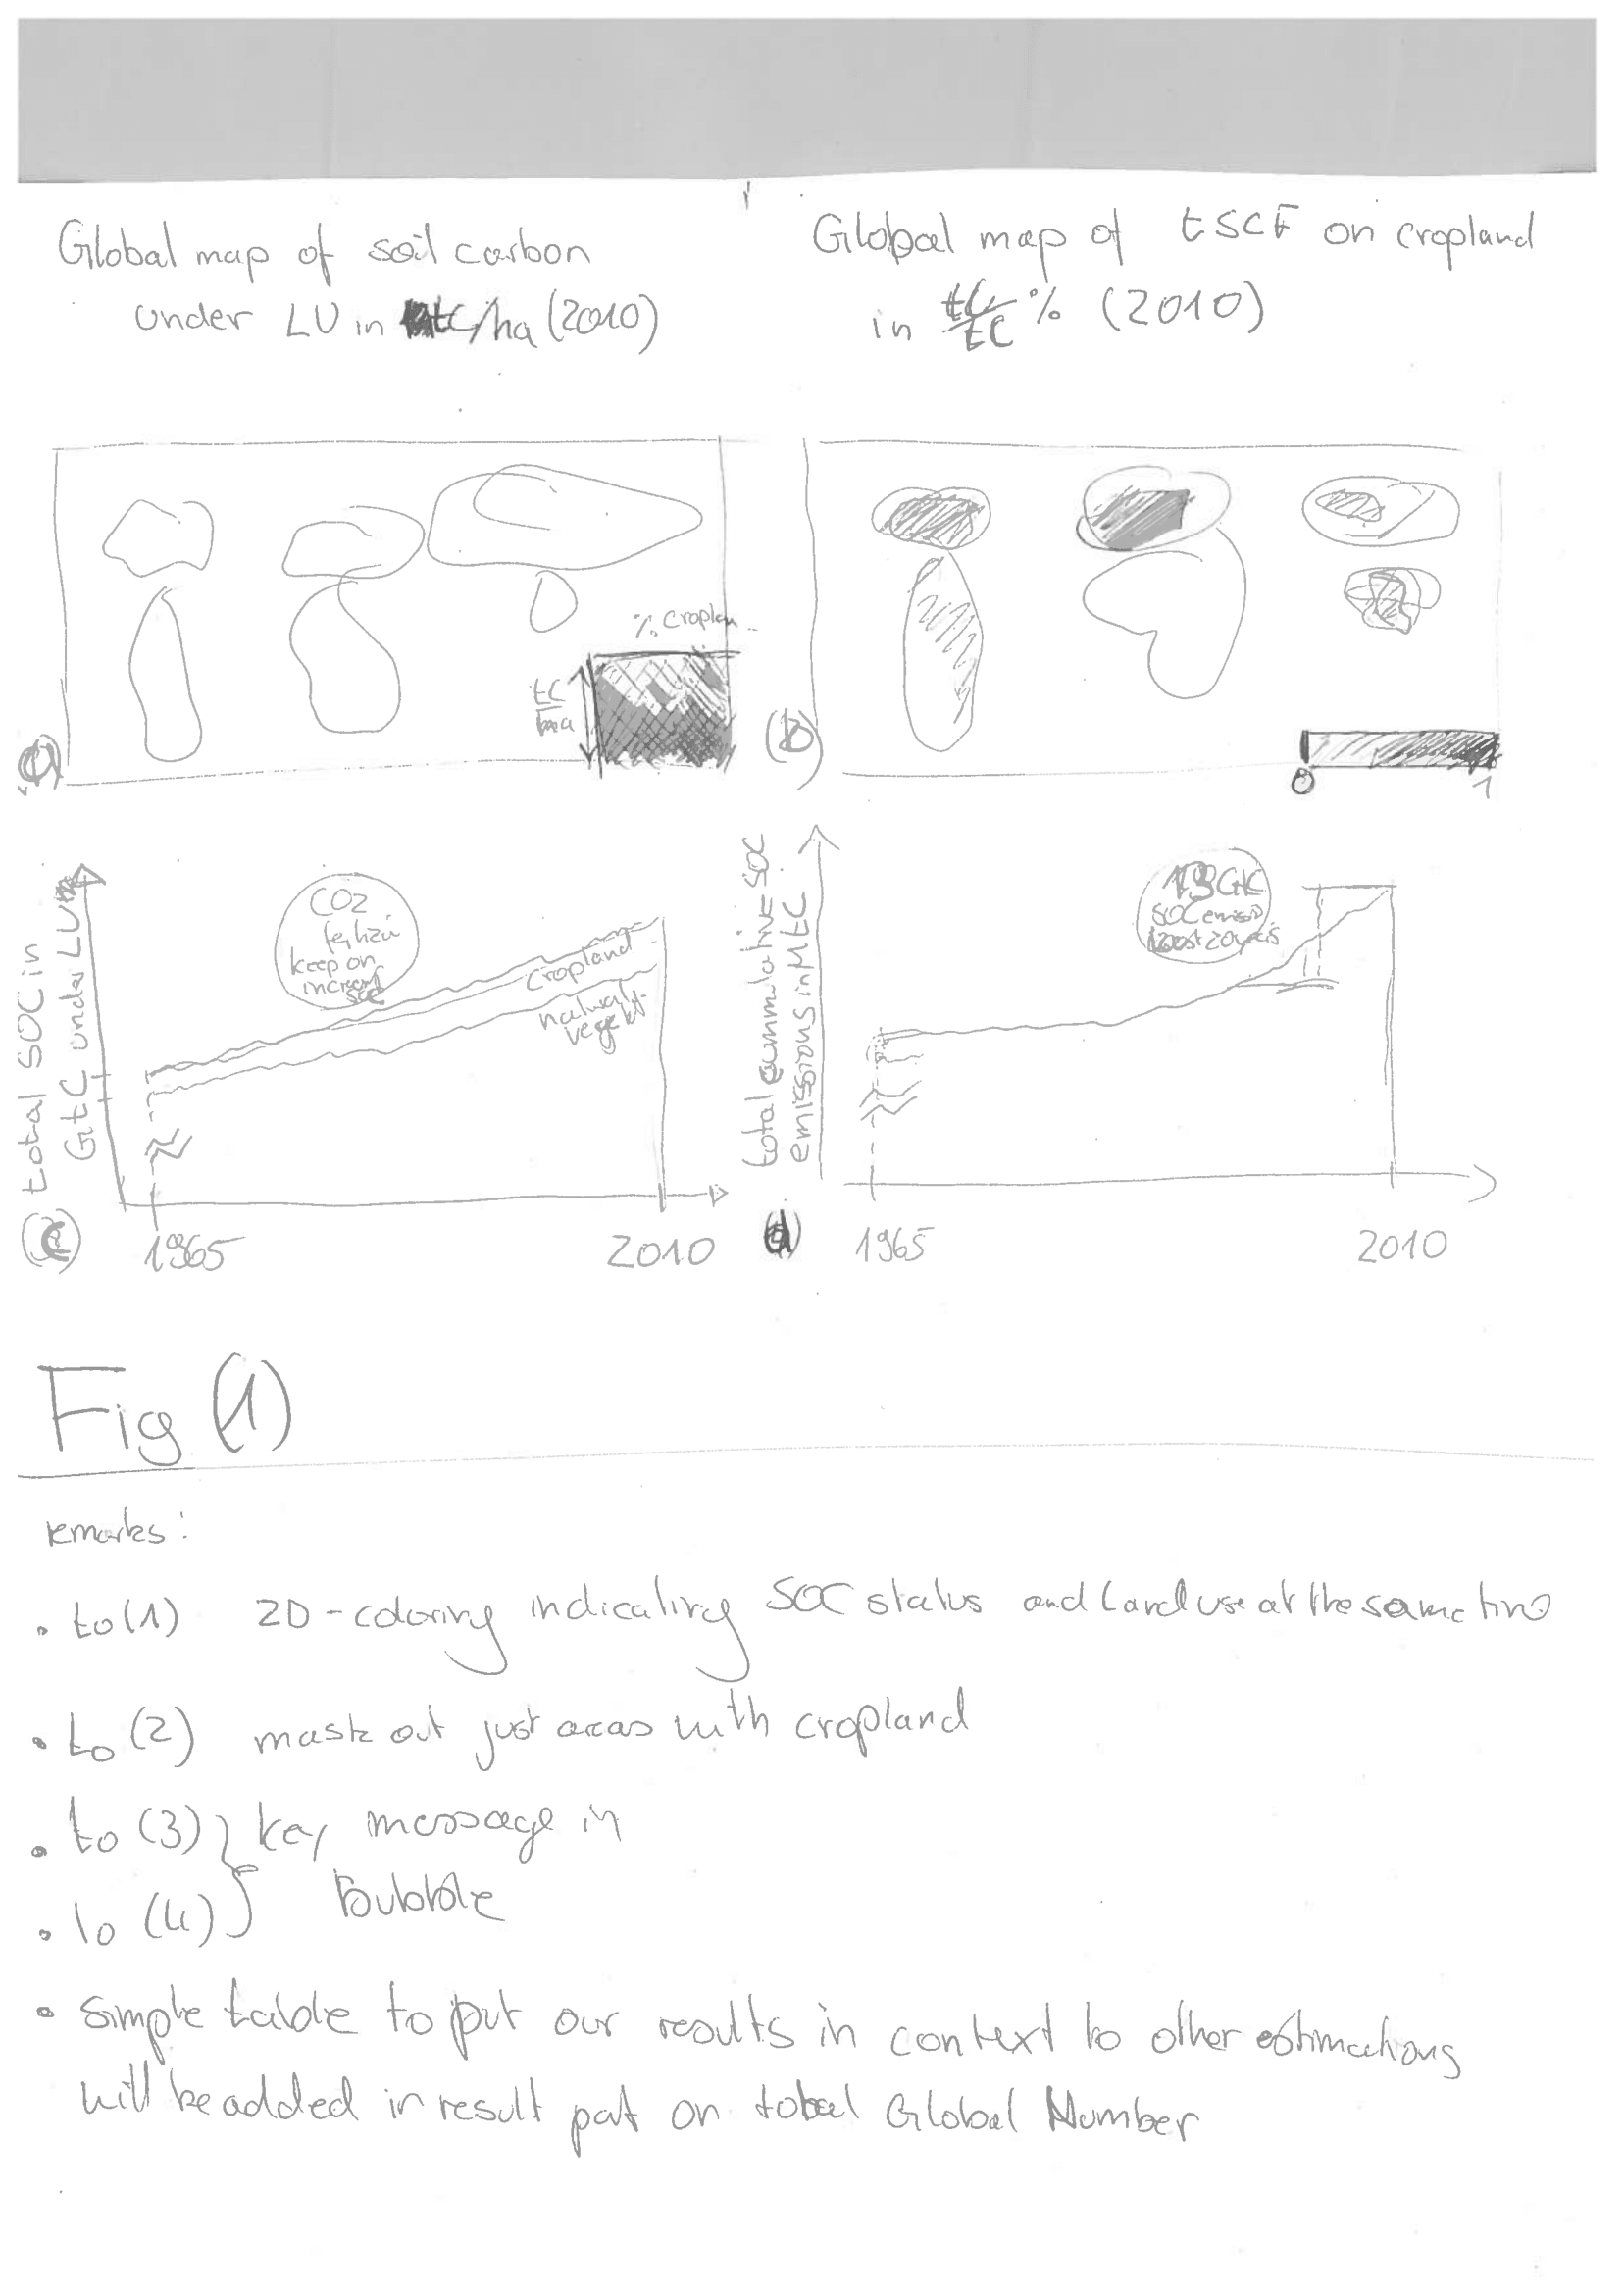 Global map of soil carbon
under LU in tC/ha (2010)
Global map of tSCF on cropland
in tC/tC % (2010)
% Croplan
tC/ha
(b)
0 1
total SOC in
GtC under LU
CO2
keep on
cropland
natural
veget.
(c)
1965 2010
total cummulative SOC
emissions in MtC
GtC
SOC emiss
20 years
(d)
1965 2010
Fig (1)
remarks:
• to (1) 2D-coloring indicating SOC status and Land use at the same time
• to (2) mask out just areas with cropland
• to (3) } key message in
• to (4) } Bubble
• simple table to put our results in context to other estimations
will be added in result part on total Global Number